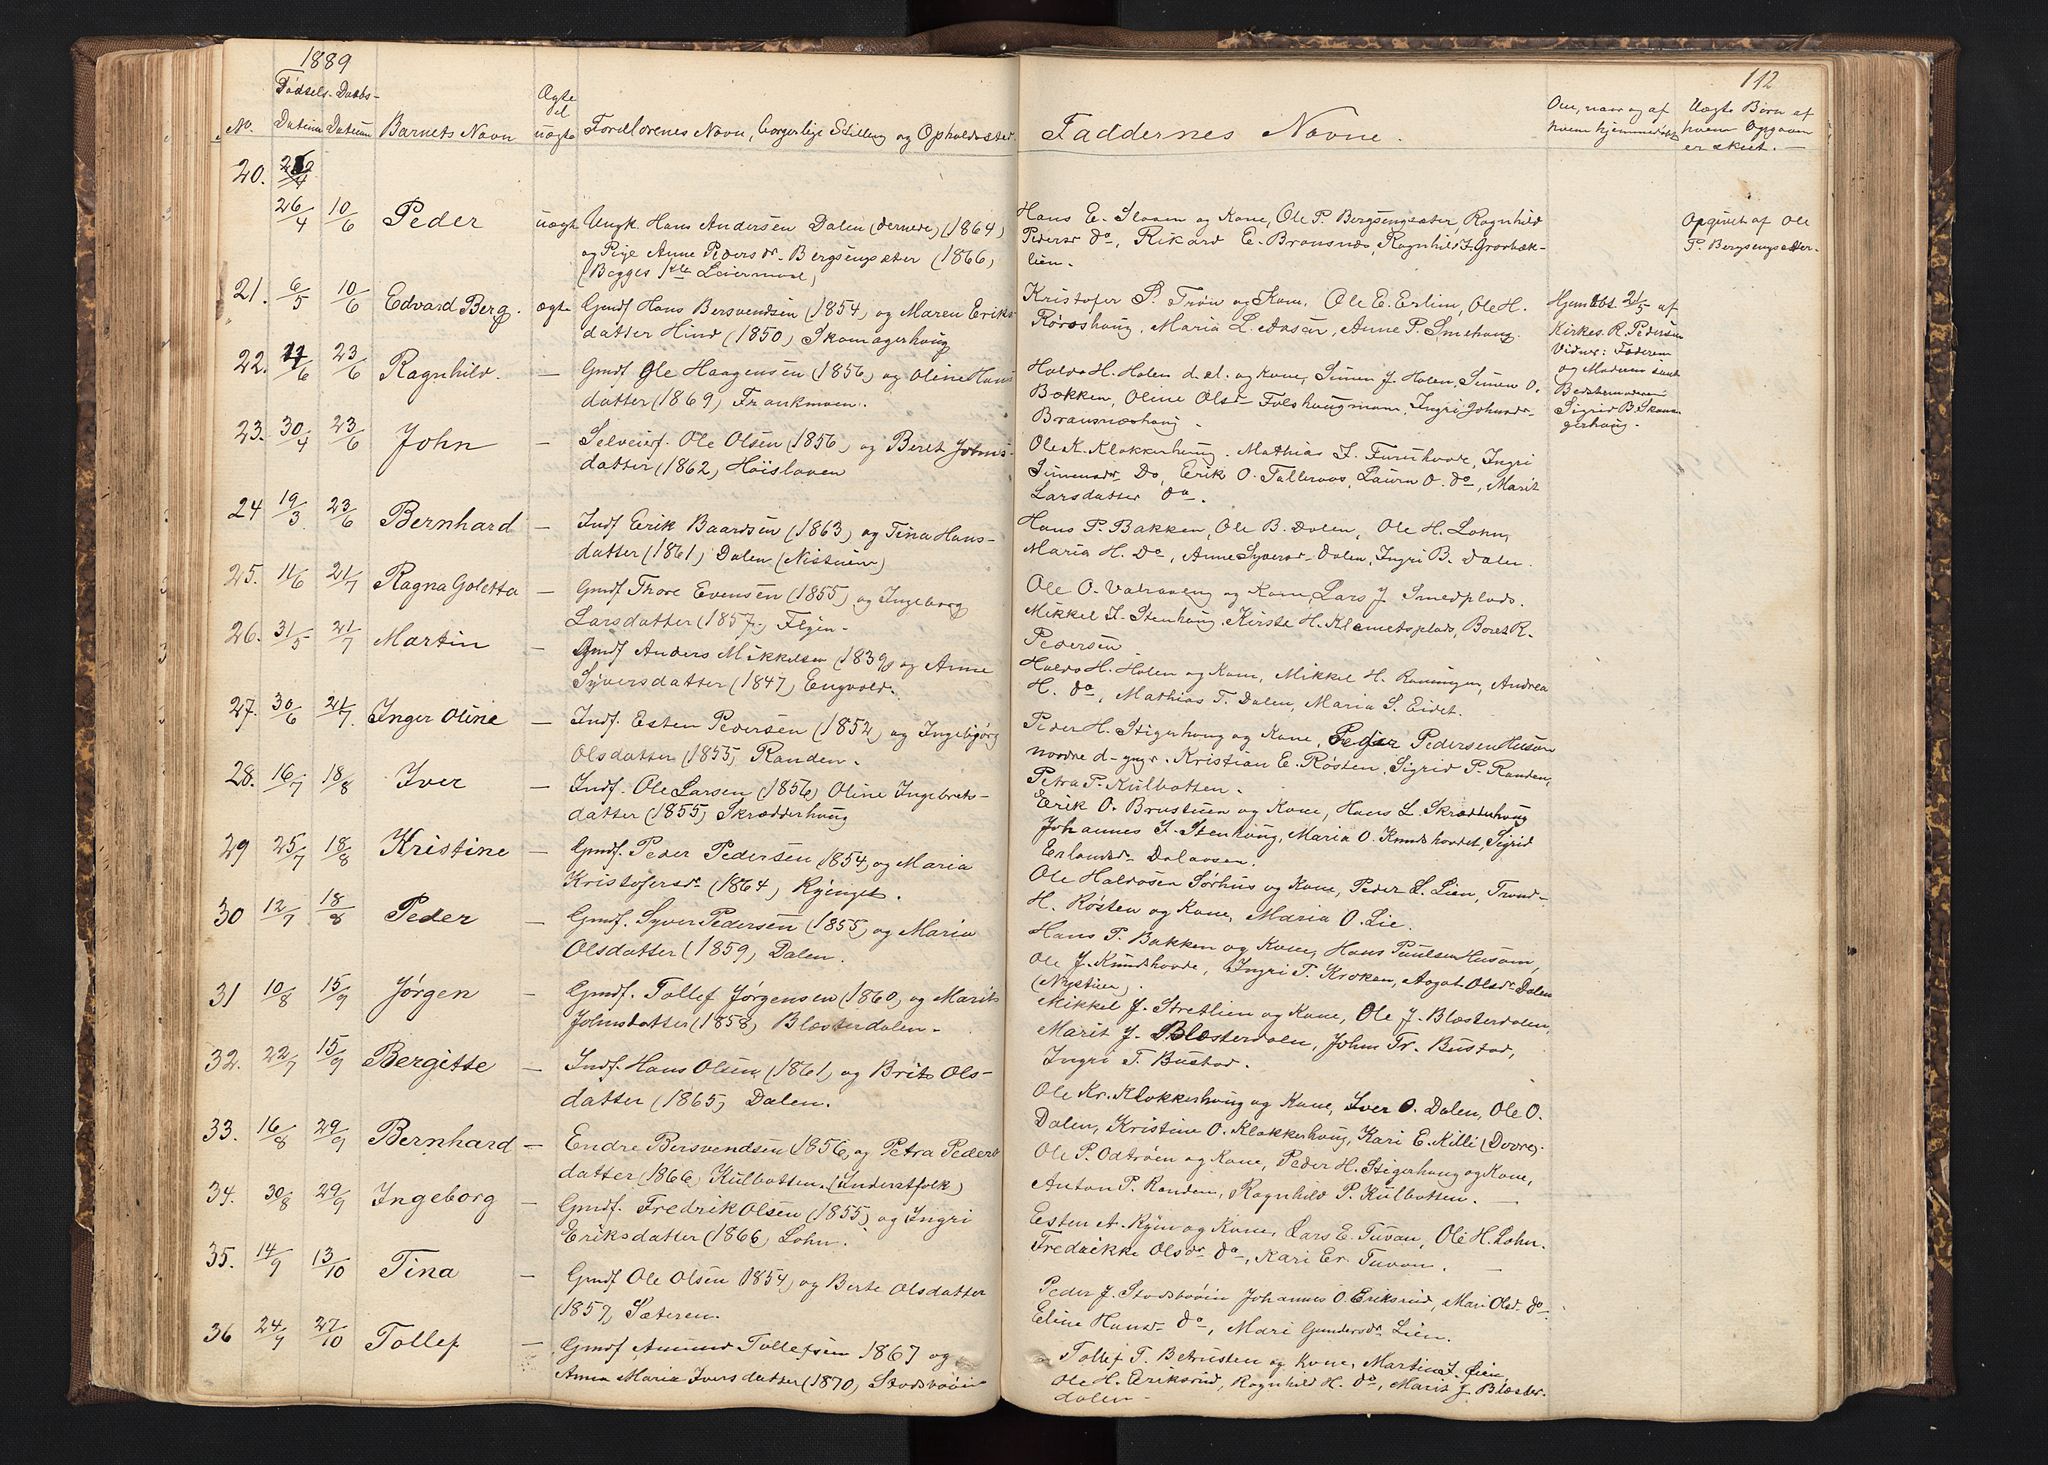 1889
Fødsels- Daabs-
No. Datum Datum Barnets Navn
Ægte
el
uægte
Forældrenes Navn, borgerlige Stilling og Opholdssted
20.
26/4 10/6 Peder uægt Ungk. Hans Andersen Dalen (dernede) (1864)
og Pige Anne Pedersdr. Bergsengsæter (1866,
(Begges 1ste Leiermaal)
21. 6/5 10/6 Edvard Berg. ægte Gmdf Hans Bersvendsen (1854) og Maren Eriks-
datter Hind (1850) Skomagerhaug
22. /6 23/6 Ragnhild. — Gmdf Ole Haagensen (1856) og Oline Hans
datter (1869) Frankmoen.
23. 30/4 23/6 John — Selveierf. Ole Olsen (1856, og Beret Johns-
datter (1862, Höisloven
24 19/3 23/6 Bernhard — Indf Erik Baardsen (1863, og Tina Hans-
datter (1861) Dalen (Nistuen)
25. 11/6 21/7 Ragna Goletta — Gmdf Thore Evensen (1855) og Ingeborg
Larsdatter (1857,) Flyen.
26. 31/5 21/7 Martin — Gmdf Anders Mikkelsen (1839, og Anne
Syversdatter (1847) Engvold.
27. 30/6 21/7. Inger Oline — Indf. Esten Pedersen (1852) og Ingebjørg
Olsdatter (1855, Randen.
28. 16/7 18/8 Iver — Indf. Ole Larsen (1856) Oline Ingebrets-
datter (1855, Skrædderhaug
29 25/7 18/8 Kristine — Gmdf. Peder Pedersen 1854, og Maria
Kristofersdr. (1864, Ryenget.
30 12/7 18/8 Peder — Gmdf. Syver Pedersen (1855) og Maria
Olsdatter (1859, Dalen.
31 10/8 15/9 Jørgen — Gmdf. Tollef Jørgensen (1860, og Marit
Johnsdatter (1858, Blæsterdalen.
32. 22/7 15/9 Bergitte — Indf. Hans Olsen (1861, og Brit Ols-
datter (1865, Dalen.
33. 16/8 29/9 Bernhard — Endre Bersvendsen 1856, og Petra Peders
datter 1866, Kulbotten. (Inderstfolk)
34. 30/8 29/9 Ingeborg — Gmdf. Fredrik Olsen (1855) og Ingri
Eriksdatter (1866, Lohn.
35. 14/9 13/10 Tina — Gmdf Ole Olsen 1854, og Berte Olsdatter
(1857, Sæteren.
36 24/9 27/10 Tollef — Gmdf Amund Tollefsen 1867 og
Anna Maria Iversdatter (1870, Stodsbøien
112
Faddernes Navne.
Om, naar og af
hvem hjemmedøbt
Uægte Børn af
hvem Opgaven
er skeet.
Hans E. Sloaen og Kone, Ole P. Bergsengsæter, Ragnhild
Pedersdr do, Rikard E. Bransnæs, Ragnhild J. Grovbæk-
lien.
Opgivet af Ole
P. Bergsengsæter.
Kristofer P. Trøn og Kone, Ole E. Erlien, Ole H.
Røroshaug, Maria L. Aasen, Anne P. Smehaug.
Hjemdbt. 21/5 af
Kirkes. R. Pedersen
Vidner: Faderen
og Moderen samt
Bedstemoderen
Sigrid B. Skoma-
gerhaug.
Haldo H. Holen d. æl. og Kone, Simen J. Holen, Simen O.
Bakken, Oline Olsdr Folshaugmoen, Ingri Johnsdr.
Bransnæshaug.
Ole K. Klokkerhaug, Mathias J. Furuhovde, Ingri
Simensdr Do, Erik O. Talleraas, Laura O. do, Marit
Larsdatter do.
Hans P. Bakken, Ole B. Dalen, Ole H. Lohn,
Maria H. Do, Anne Syversdr Dalen, Ingri B. Dalen.
Ole O. og Kone, Lars J. Smedplads.
Mikkel I. Stenhaug, Kirsti H. Klemetsplads, Boret R.
Pedersen
Haldo H. Holen og Kone, Mikkel H. Roningen, Andrea
H. do, Mathias T. Dalen, Maria S. Eidet.
Peder H. Stigerhaug og Kone, Peder Pedersen Husom
nordre d. yngr. Kristian E. Røsten, Sigrid P. Randen,
Petra P. Kulbotten.
Erik O. Brustuen og Kone, Hans L. Skrædderhaug
Johannes I. Stenhaug, Maria O. Kundshovdet, Sigrid
Erlandsdr. Dalaasen.
Ole Haldosen Sørhus og Kone, Peder L. Lien, Trond
H. Røsten og Kone, Maria O. Lie.
Hans P. Bakken og Kone, Hans Paulsen Husom,
Ole J. Kundshovde, Ingri T. Kroken, Aagot Olsdr Dalen
(Nystuen).
Mikkel J. Stretlien og Kone, Ole J. Blæsterdalen,
Marit J. Blæsterdalen, John Tr. Bustad,
Ingri T. Bustad.
Ole Kr. Klokkerhaug og Kone, Iver O. Dalen, Ole O.
Dalen, Kristine O. Klokkerhaug, Kari E. Killi (Dovre).
Ole P. Odtrøen og Kone, Peder H. Stigerhaug og Kone,
Anton P. Randen, Ragnhild P. Kulbotten.
Esten A. Ryen og Kone, Lars E. Tuvan, Ole H. Lohn.
Fredrikke Olsdr do, Kari Er. Tuvan.
Peder J. Stodsbøien Johannes O. Eriksrud, Mari Olsdr do.
Eline Hansdr do, Mari Gundersdr Lien.
Tollef T. Betzusten og Kone, Martin I. Øien,
Ole H. Eriksrud, Ragnhild H. do, Marit J. Blæster-
dalen.